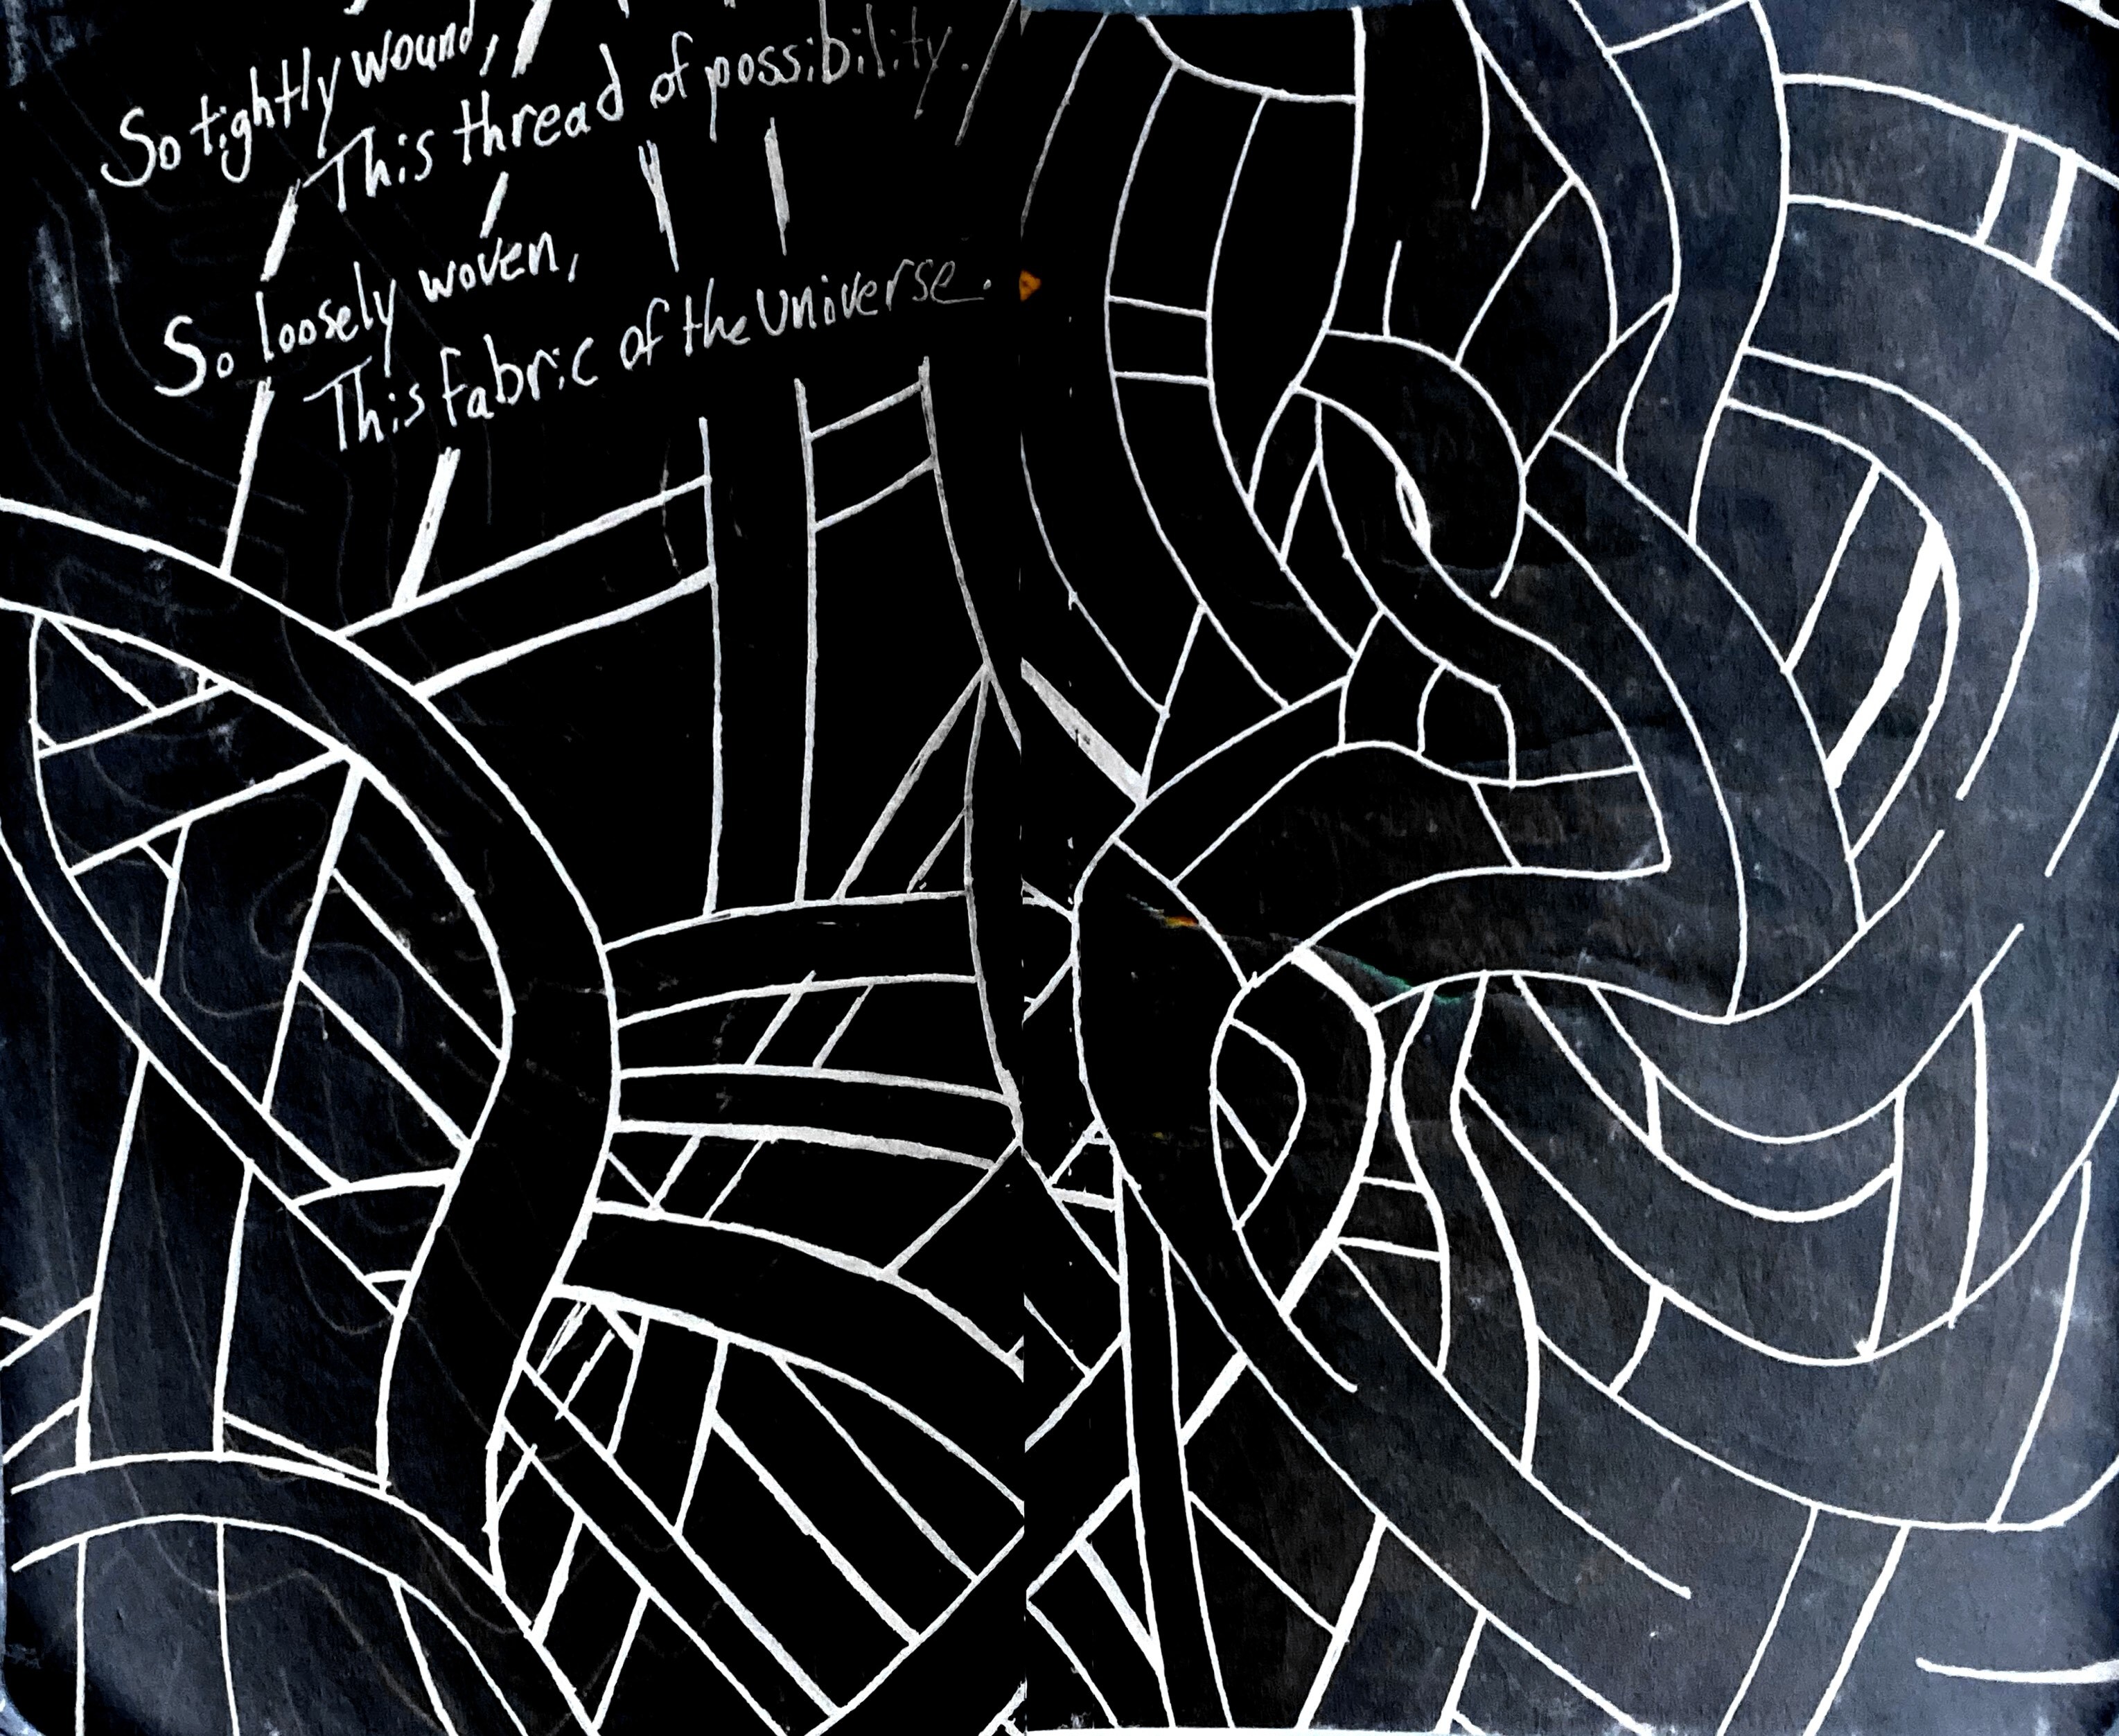 So tightly wound,
This thread of possibility.
So loosely woven,
This fabric of the Universe.